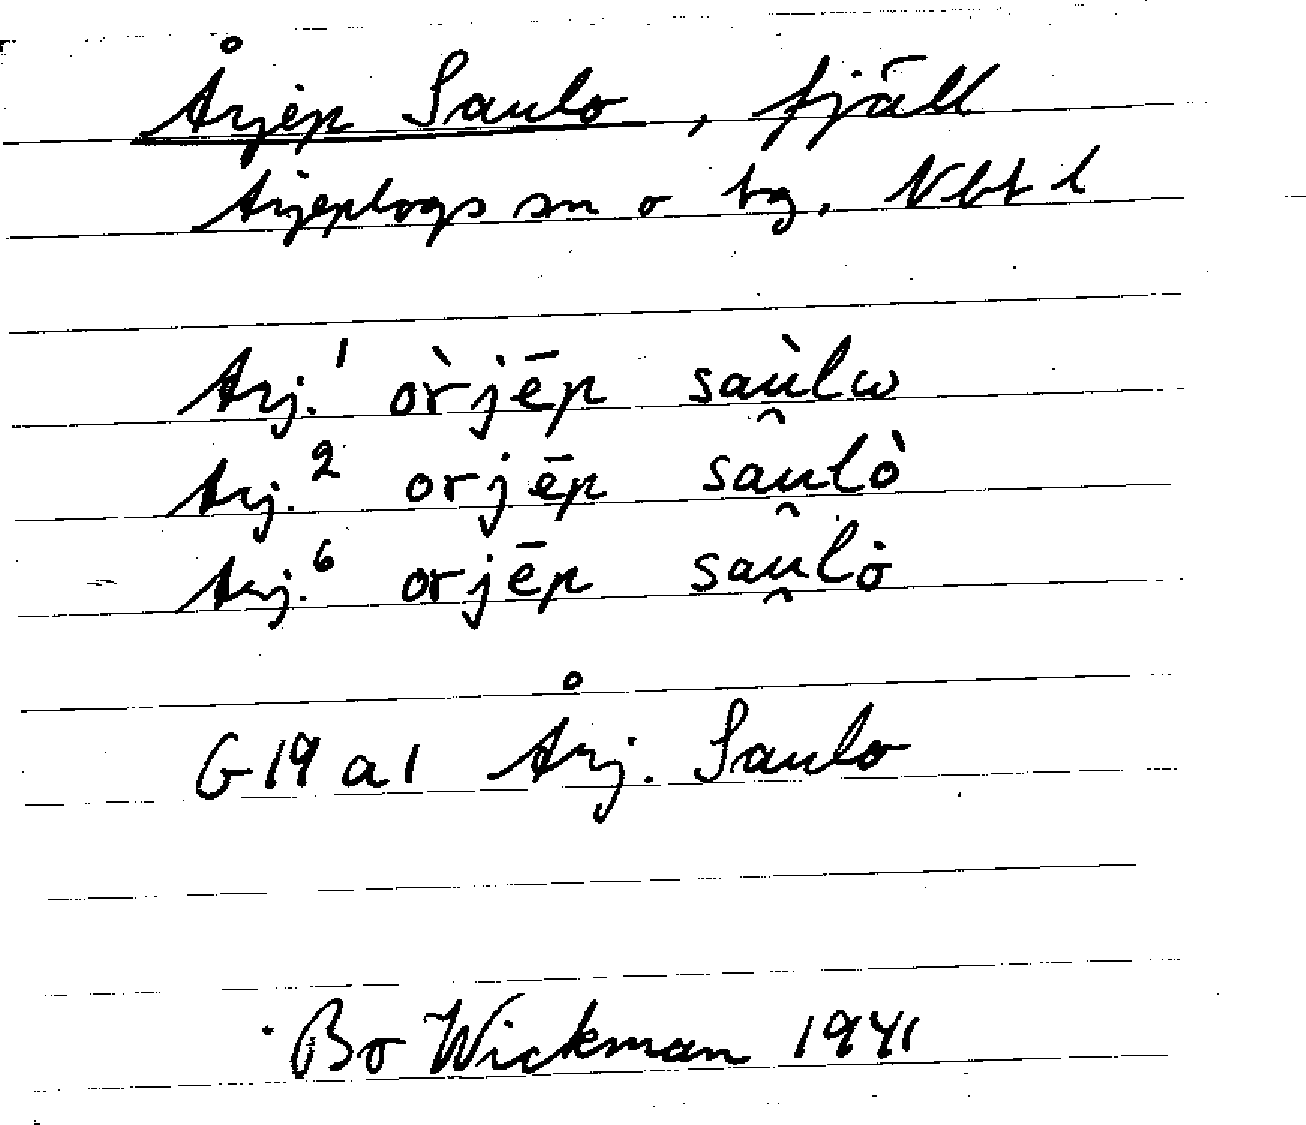 Årjep Saulo, fjäll
Arjeplogs sn o tg, Nbt l
Arj.¹ òrjēp saù̯lω
Arj.² orjēp sau̯lò
Arj.⁶ orjēp sau̯lȯ
G 19 a 1 Årj. Saulo
Bo Wickman 1941